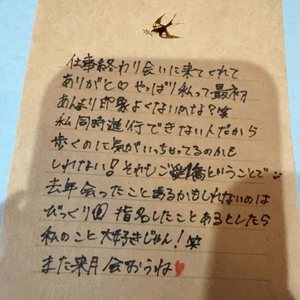 仕事終わり会いに来てくれて
ありがと♡ やっぱり私って最初
あんまり印象よくないのかな？笑
私同時進行できない人だから
歩くのに気がいっちゃってるのかも
しれない！それもご愛嬌ということで
去年会ったことあるかもしれないのは
びっくり 指名したことあるとしたら
私のこと大好きじゃん！笑
また来月会おうね♥